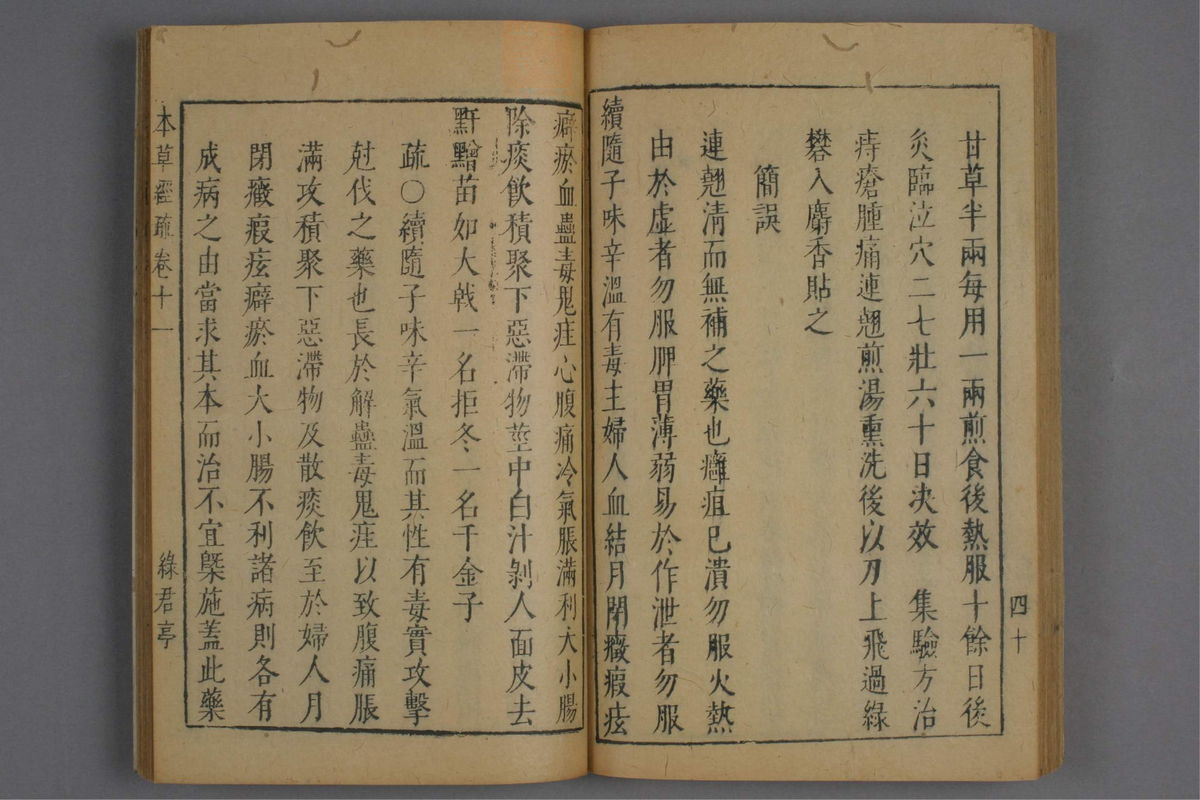 四十
甘草半兩每用一兩煎食後熱服十餘日後
灸臨泣穴二七壯六十日決效　集驗方治
痔瘡腫痛連翹煎湯熏洗後以刀上飛過綠
礬入麝香貼之
簡誤
連翹清而無補之藥也癰疽已潰勿服火熱
由於虛者勿服脾胃薄弱易於作泄者勿服
續隨子味辛溫有毒主婦人血結月閉癥瘕痃
癖瘀血蠱毒鬼疰心腹痛冷氣脹滿利大小腸
除痰飲積聚下惡滯物莖中白汁剝人面皮去
䵟黯苗如大戟一名拒冬一名千金子
疏○續隨子味辛氣溫而其性有毒實攻擊
尅伐之藥也長於解蠱毒鬼疰以致腹痛脹
滿攻積聚下惡滯物及散痰飲至於婦人月
閉癥瘕痃癖瘀血大小腸不利諸病則各有
成病之由當求其本而治不宜槩施蓋此藥
本草經疏卷十一
綠君亭